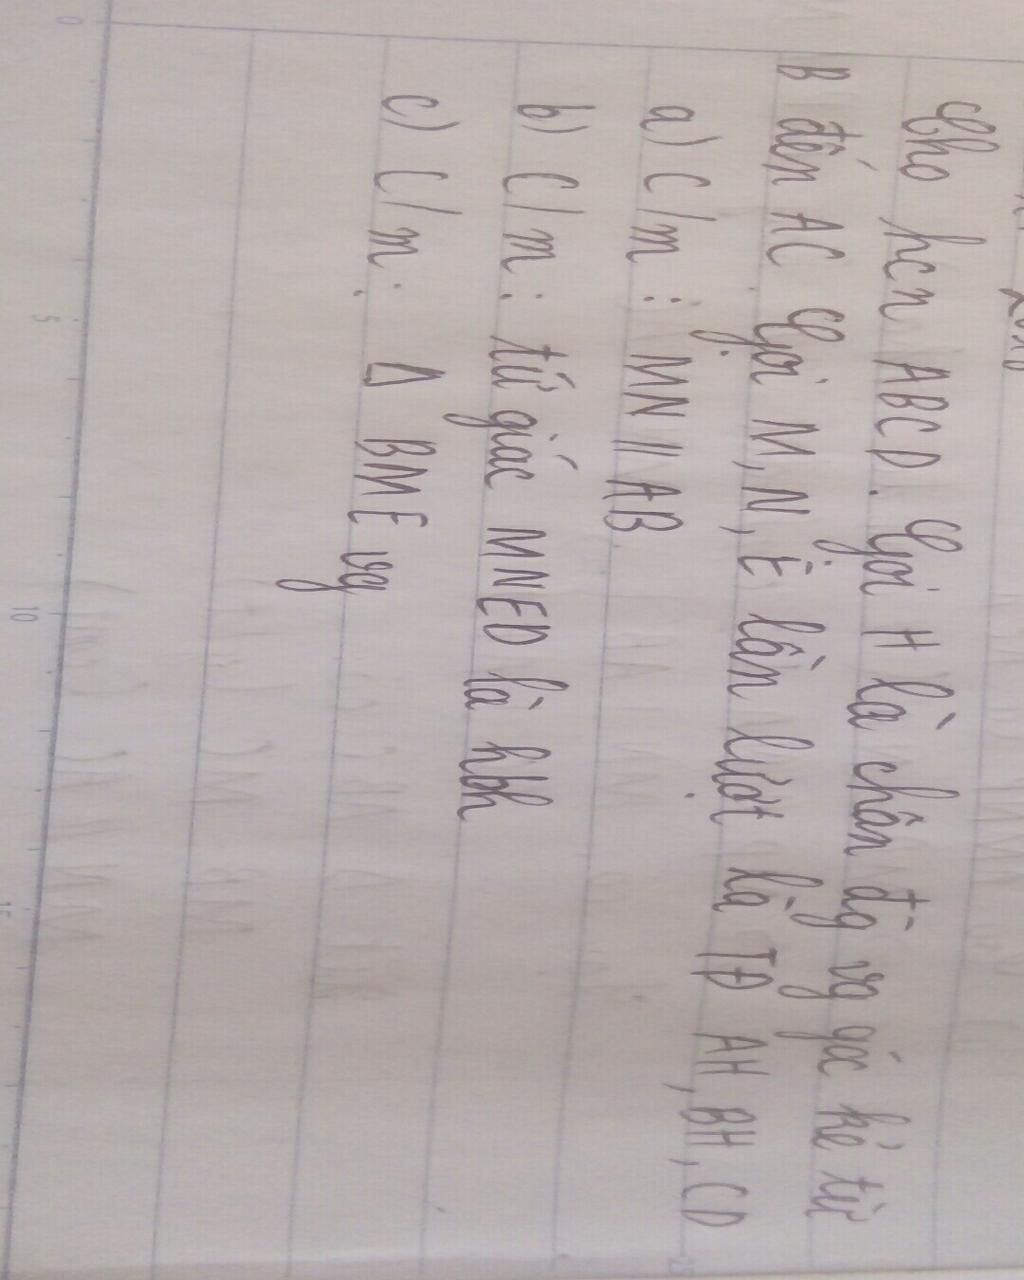 Cho hcn ABCD. Gọi H là chân đg vg góc kẻ từ
B đến AC Gọi M, N, E lần lượt là TĐ AH, BH, CD
a) C/m : MN // AB
b) C/m : tứ giác MNED là hbh
c) C/m : Δ BME vg
0 5 10 15